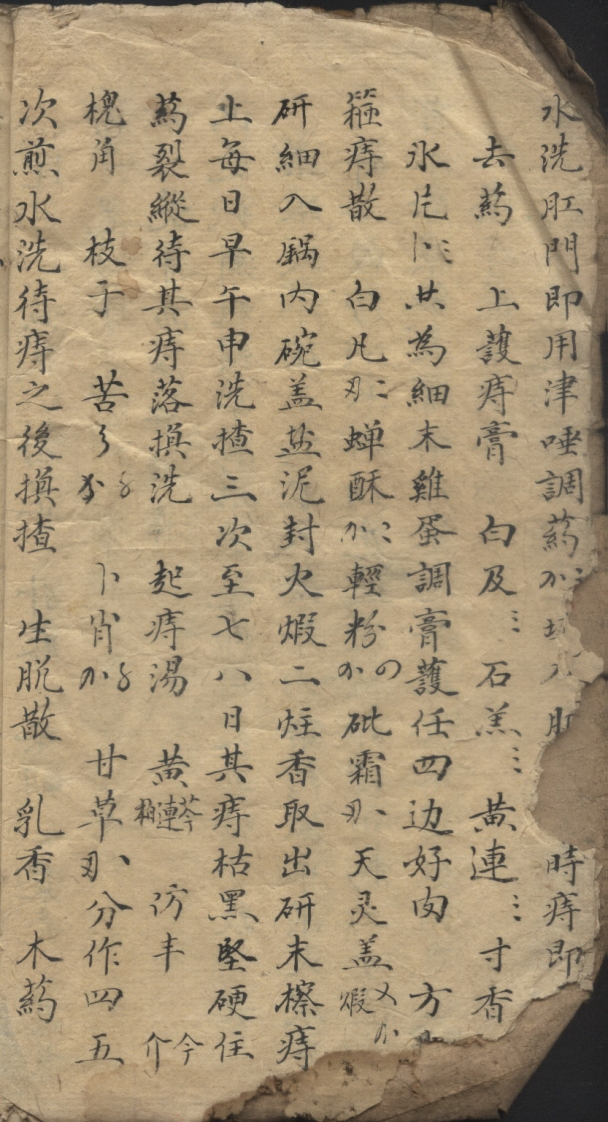 水洗肛門即用津唾調藥 時痔即
去藥 上護痔膏 白及 石羔 黄連 寸香
氷片 共為細末雞蛋調膏護任四边好肉 方
箍痔散 白凡 蝉酥 輕粉 砒霜 天灵盖煅
研細入鍋内碗盖盐泥封火煅二炷香取出研末擦痔
上每日早午申洗揸三次至七八日其痔枯黑堅硬住
藥裂縱待其痔落換洗 起痔湯 黄芩連栢 防丰 今介
槐角 枝子 苦 卜肖 甘草 分作四五
次煎水洗待痔之後換揸 生脱散 乳香 木藥